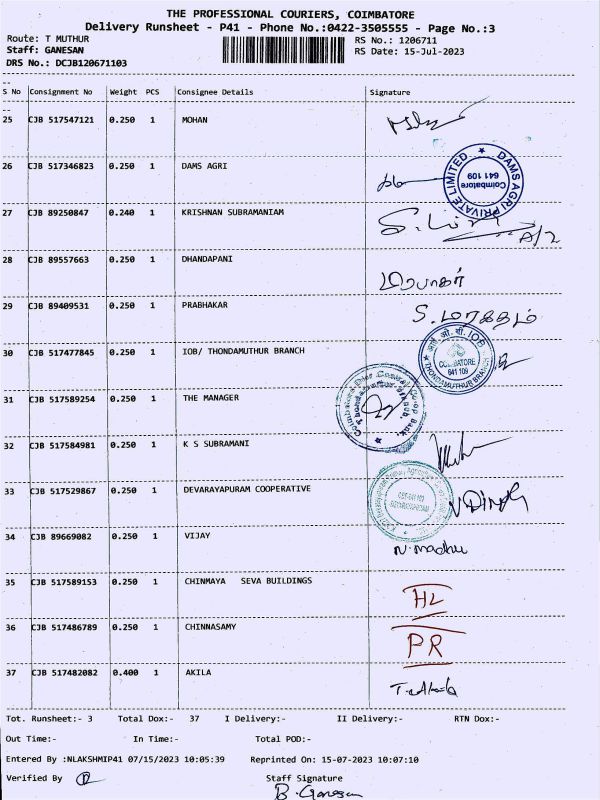 THE PROFESSIONAL COURIERS, COIMBATORE
Delivery Runsheet - P41 - Phone No.:0422-3505555 - Page No.:3
Route: T MUTHUR RS No.: 1206711
Staff: GANESAN RS Date: 15-Jul-2023
DRS No.: DCJB120671103
S No Consignment No Weight PCS Consignee Details Signature
25 CJB 517547121 0.250 1 MOHAN
26 CJB 517346823 0.250 1 DAMS AGRI
DAMS AGRI PRIVATE LIMITED
Coimbatore
641 109
27 CJB 89250847 0.240 1 KRISHNAN SUBRAMANIAM
28 CJB 89557663 0.250 1 DHANDAPANI
29 CJB 89409531 0.250 1 PRABHAKAR S. மரகதம்
30 CJB 517477845 0.250 1 IOB/ THONDAMUTHUR BRANCH
COIMBATORE
641 109
THONDAMUTHUR BRANCH
31 CJB 517589254 0.250 1 THE MANAGER
32 CJB 517584981 0.250 1 K S SUBRAMANI
33 CJB 517529867 0.250 1 DEVARAYAPURAM COOPERATIVE
34 CJB 89669082 0.250 1 VIJAY N. madhu
35 CJB 517589153 0.250 1 CHINMAYA SEVA BUILDINGS HL
36 CJB 517486789 0.250 1 CHINNASAMY PR
37 CJB 517482082 0.400 1 AKILA
Tot. Runsheet:- 3 Total Dox:- 37 I Delivery:- II Delivery:- RTN Dox:-
Out Time:- In Time:- Total POD:-
Entered By :NLAKSHMIP41 07/15/2023 10:05:39 Reprinted On: 15-07-2023 10:07:10
Verified By Staff Signature
B. Ganesan